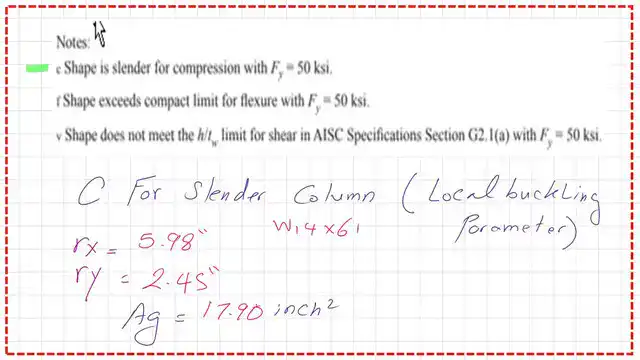 Notes:
c Shape is slender for compression with Fy = 50 ksi.
f Shape exceeds compact limit for flexure with Fy = 50 ksi.
v Shape does not meet the h/tw limit for shear in AISC Specifications Section G2.1(a) with Fy = 50 ksi.
C For Slender Column (Local buckling
Parometer)
W14x61
rx = 5.98"
ry = 2.45"
Ag = 17.90 inch²